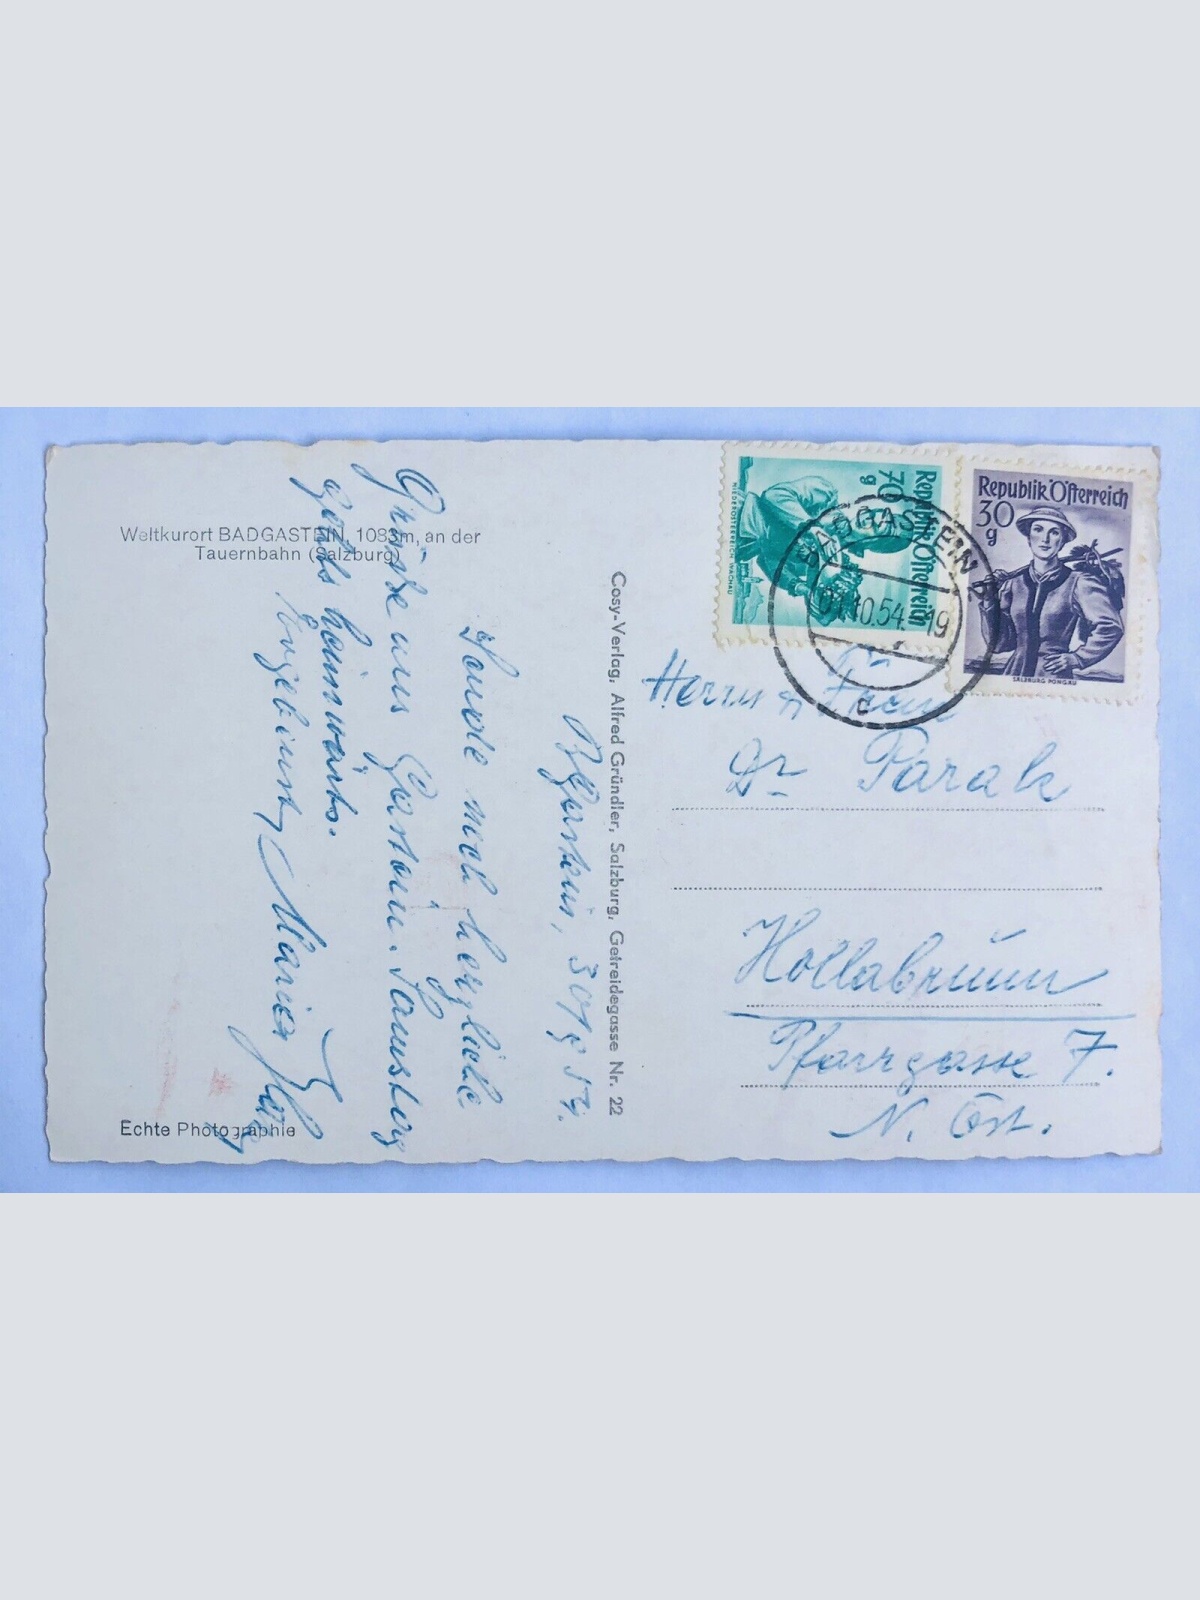 Weltkurort BADGASTEIN, 1083m, an der
Tauernbahn (Salzburg)
Bgastein, 30/9 54.
Sende noch herzliche
Grüße aus Gastein. Samstag
geht's heimwärts.
Marie
Echte Photographie
Cosy-Verlag, Alfred Gründler, Salzburg, Getreidegasse Nr. 22
Republik Österreich
70 g
NIEDERÖSTERREICH WACHAU
Republik Österreich
30
g
SALZBURG PONGAU
BADGASTEIN
01.10.54-19
c
Herrn u Frau
Dr Parak
Hollabrunn
Pfarrgasse 7.
N. Öst.